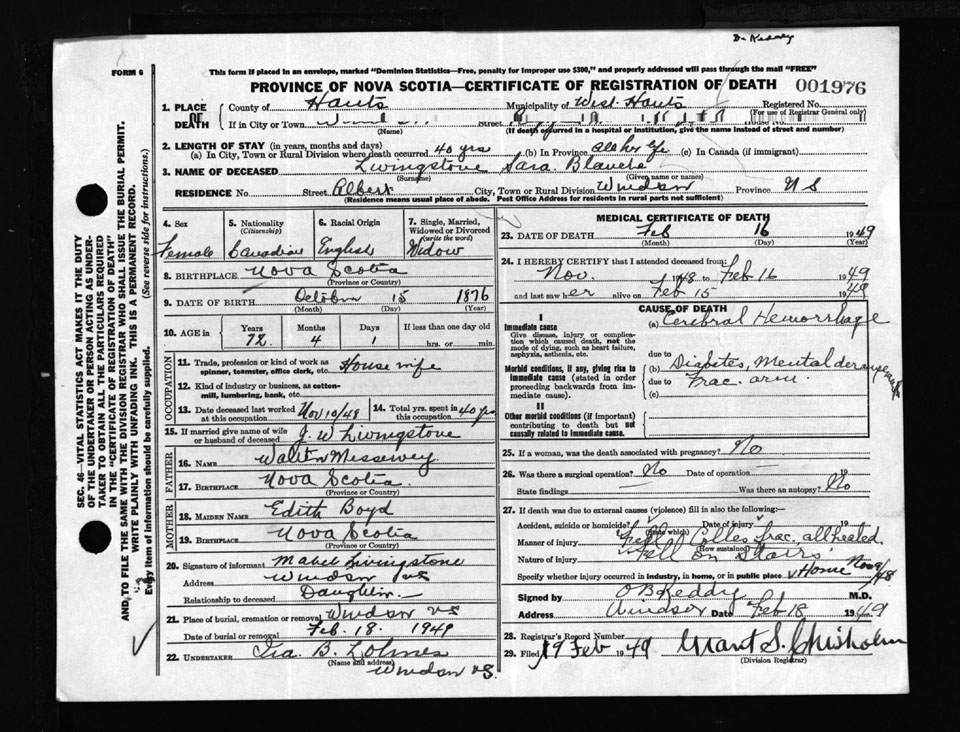 Dr Reddy
FORM 6
This form if placed in an envelope, marked "Dominion Statistics—Free, penalty for improper use $300," and properly addressed will pass through the mail "FREE"
PROVINCE OF NOVA SCOTIA—CERTIFICATE OF REGISTRATION OF DEATH 001976
1. PLACE OF DEATH
County of Hants Municipality of West Hants Registered No.
(For use of Registrar General only)
If in City or Town Street
(Name) (If death occurred in a hospital or institution, give the name instead of street and number)
2. LENGTH OF STAY (in years, months and days)
(a) In City, Town or Rural Division where death occurred 40 yrs (b) In Province all her life (c) In Canada (if immigrant)
3. NAME OF DECEASED Livingstone Sara Blanche
(Surname) (Given name or names)
RESIDENCE No. Street Albert City, Town or Rural Division Windsor Province N S
(Residence means usual place of abode. Post Office Address for residents in rural parts not sufficient)
4. Sex Female
5. Nationality (Citizenship) Canadian
6. Racial Origin English
7. Single, Married, Widowed or Divorced (write the word) Widow
8. BIRTHPLACE Nova Scotia
(Province or Country)
9. DATE OF BIRTH October 15 1876
(Month) (Day) (Year)
10. AGE in Years Months Days If less than one day old
72 4 1 hrs. or min.
OCCUPATION
11. Trade, profession or kind of work as spinner, teamster, office clerk, etc. House wife
12. Kind of industry or business, as cotton-mill, lumbering, bank, etc.
13. Date deceased last worked at this occupation Nov 10/48
14. Total yrs. spent in this occupation 40 yrs
15. If married give name of wife or husband of deceased J. W Livingstone
FATHER
16. NAME Walter Messervey
17. BIRTHPLACE Nova Scotia
(Province or Country)
MOTHER
18. MAIDEN NAME Edith Boyd
19. BIRTHPLACE Nova Scotia
(Province or Country)
20. Signature of informant Mabel Livingstone
Address Windsor NS
Relationship to deceased Daughter
21. Place of burial, cremation or removal Windsor NS
Date of burial or removal Feb. 18. 1949
22. UNDERTAKER Ira B. Lohnes
(Name and address)
Windsor NS.
MEDICAL CERTIFICATE OF DEATH
23. DATE OF DEATH Feb 16 1949
(Month) (Day) (Year)
24. I HEREBY CERTIFY that I attended deceased from:
Nov. 1948 to Feb 16 1949
and last saw her alive on Feb 15 1949
CAUSE OF DEATH
I
Immediate cause
Give disease, injury or complication which caused death, not the mode of dying, such as heart failure, asphyxia, asthenia, etc.
(a) Cerebral Hemorrhage
due to
Morbid conditions, if any, giving rise to immediate cause (stated in order proceeding backwards from immediate cause).
(b) Diabetes, Mental derangement
due to Frac. arm
(c)
II
Other morbid conditions (if important) contributing to death but not causally related to immediate cause.
25. If a woman, was the death associated with pregnancy? No
26. Was there a surgical operation? No Date of operation 19
State findings Was there an autopsy? No
27. If death was due to external causes (violence) fill in also the following:—
Accident, suicide or homicide? Date of injury 19
(State which)
Manner of injury Fell Colles frac. all healed.
(How sustained)
Nature of injury Fell on Stairs
Specify whether injury occurred in industry, in home, or in public place Home Nov 9/48
Signed by O B Keddy M.D.
Address Windsor Date Feb 18 1949
28. Registrar's Record Number
29. Filed 19 Feb 1949 Grant S. Chisholm
(Division Registrar)
SEC. 46—VITAL STATISTICS ACT MAKES IT THE DUTY
OF THE UNDERTAKER OR PERSON ACTING AS UNDER-
TAKER TO OBTAIN ALL THE PARTICULARS REQUIRED
IN THE "CERTIFICATE OF REGISTRATION OF DEATH"
AND TO FILE THE SAME WITH THE DIVISION REGISTRAR WHO SHALL ISSUE THE BURIAL PERMIT.
WRITE PLAINLY WITH UNFADING INK. THIS IS A PERMANENT RECORD.
Every item of information should be carefully supplied. (See reverse side for instructions.)